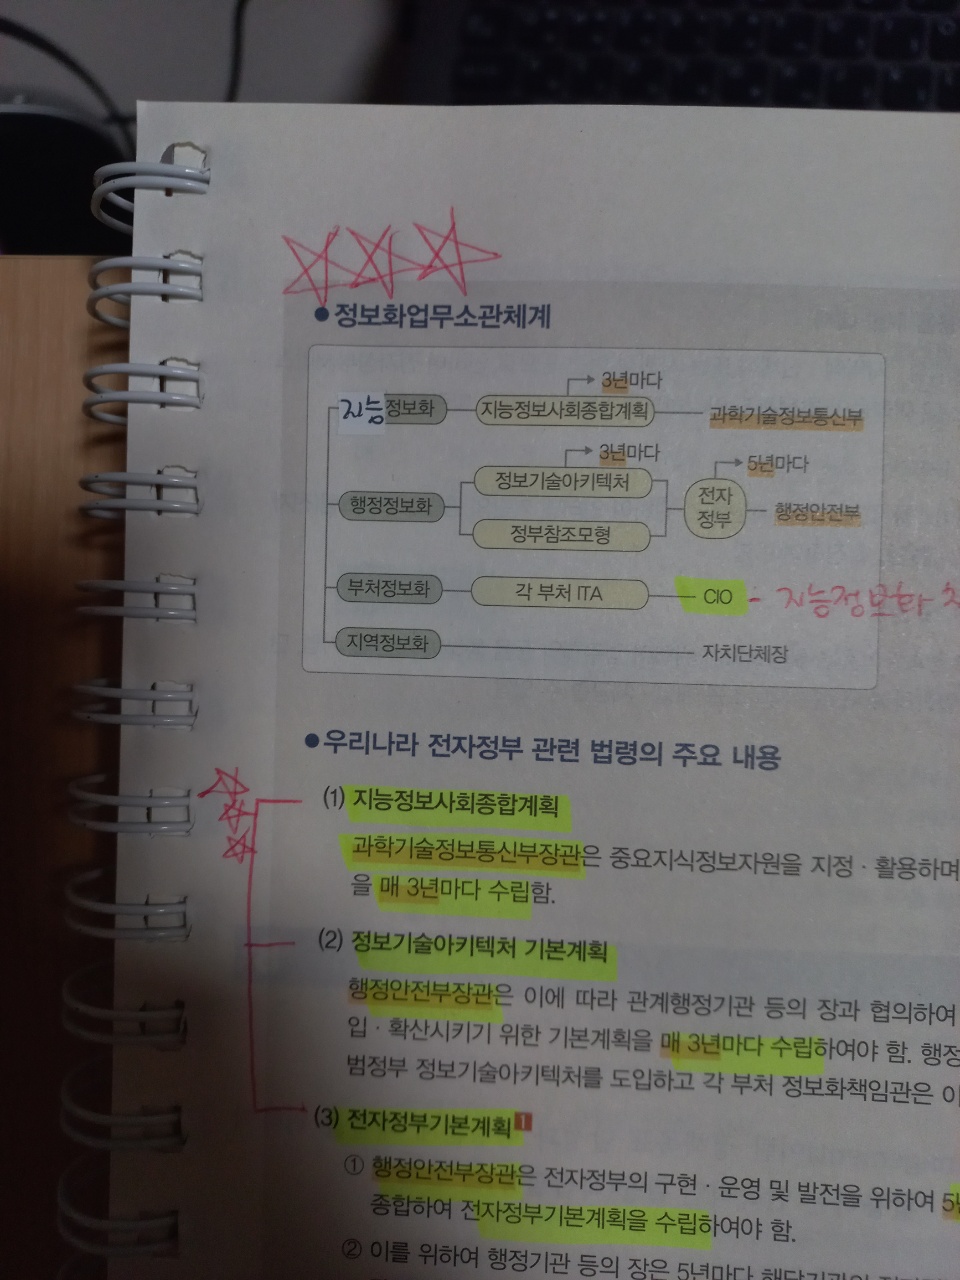 ● 정보화업무소관체계
3년마다
지능정보화 지능정보사회종합계획 과학기술정보통신부
3년마다
5년마다
정보기술아키텍처
행정정보화
전자
정부
행정안전부
정부참조모형
부처정보화 각 부처 ITA CIO - 지능정보화
지역정보화 자치단체장
● 우리나라 전자정부 관련 법령의 주요 내용
(1) 지능정보사회종합계획
과학기술정보통신부장관은 중요지식정보자원을 지정·활용하며
을 매 3년마다 수립함.
(2) 정보기술아키텍처 기본계획
행정안전부장관은 이에 따라 관계행정기관 등의 장과 협의하여
입·확산시키기 위한 기본계획을 매 3년마다 수립하여야 함. 행정
범정부 정보기술아키텍처를 도입하고 각 부처 정보화책임관은 이
(3) 전자정부기본계획 1
① 행정안전부장관은 전자정부의 구현·운영 및 발전을 위하여 5년
종합하여 전자정부기본계획을 수립하여야 함.
② 이를 위하여 행정기관 등의 장은 5년마다 해당기관의